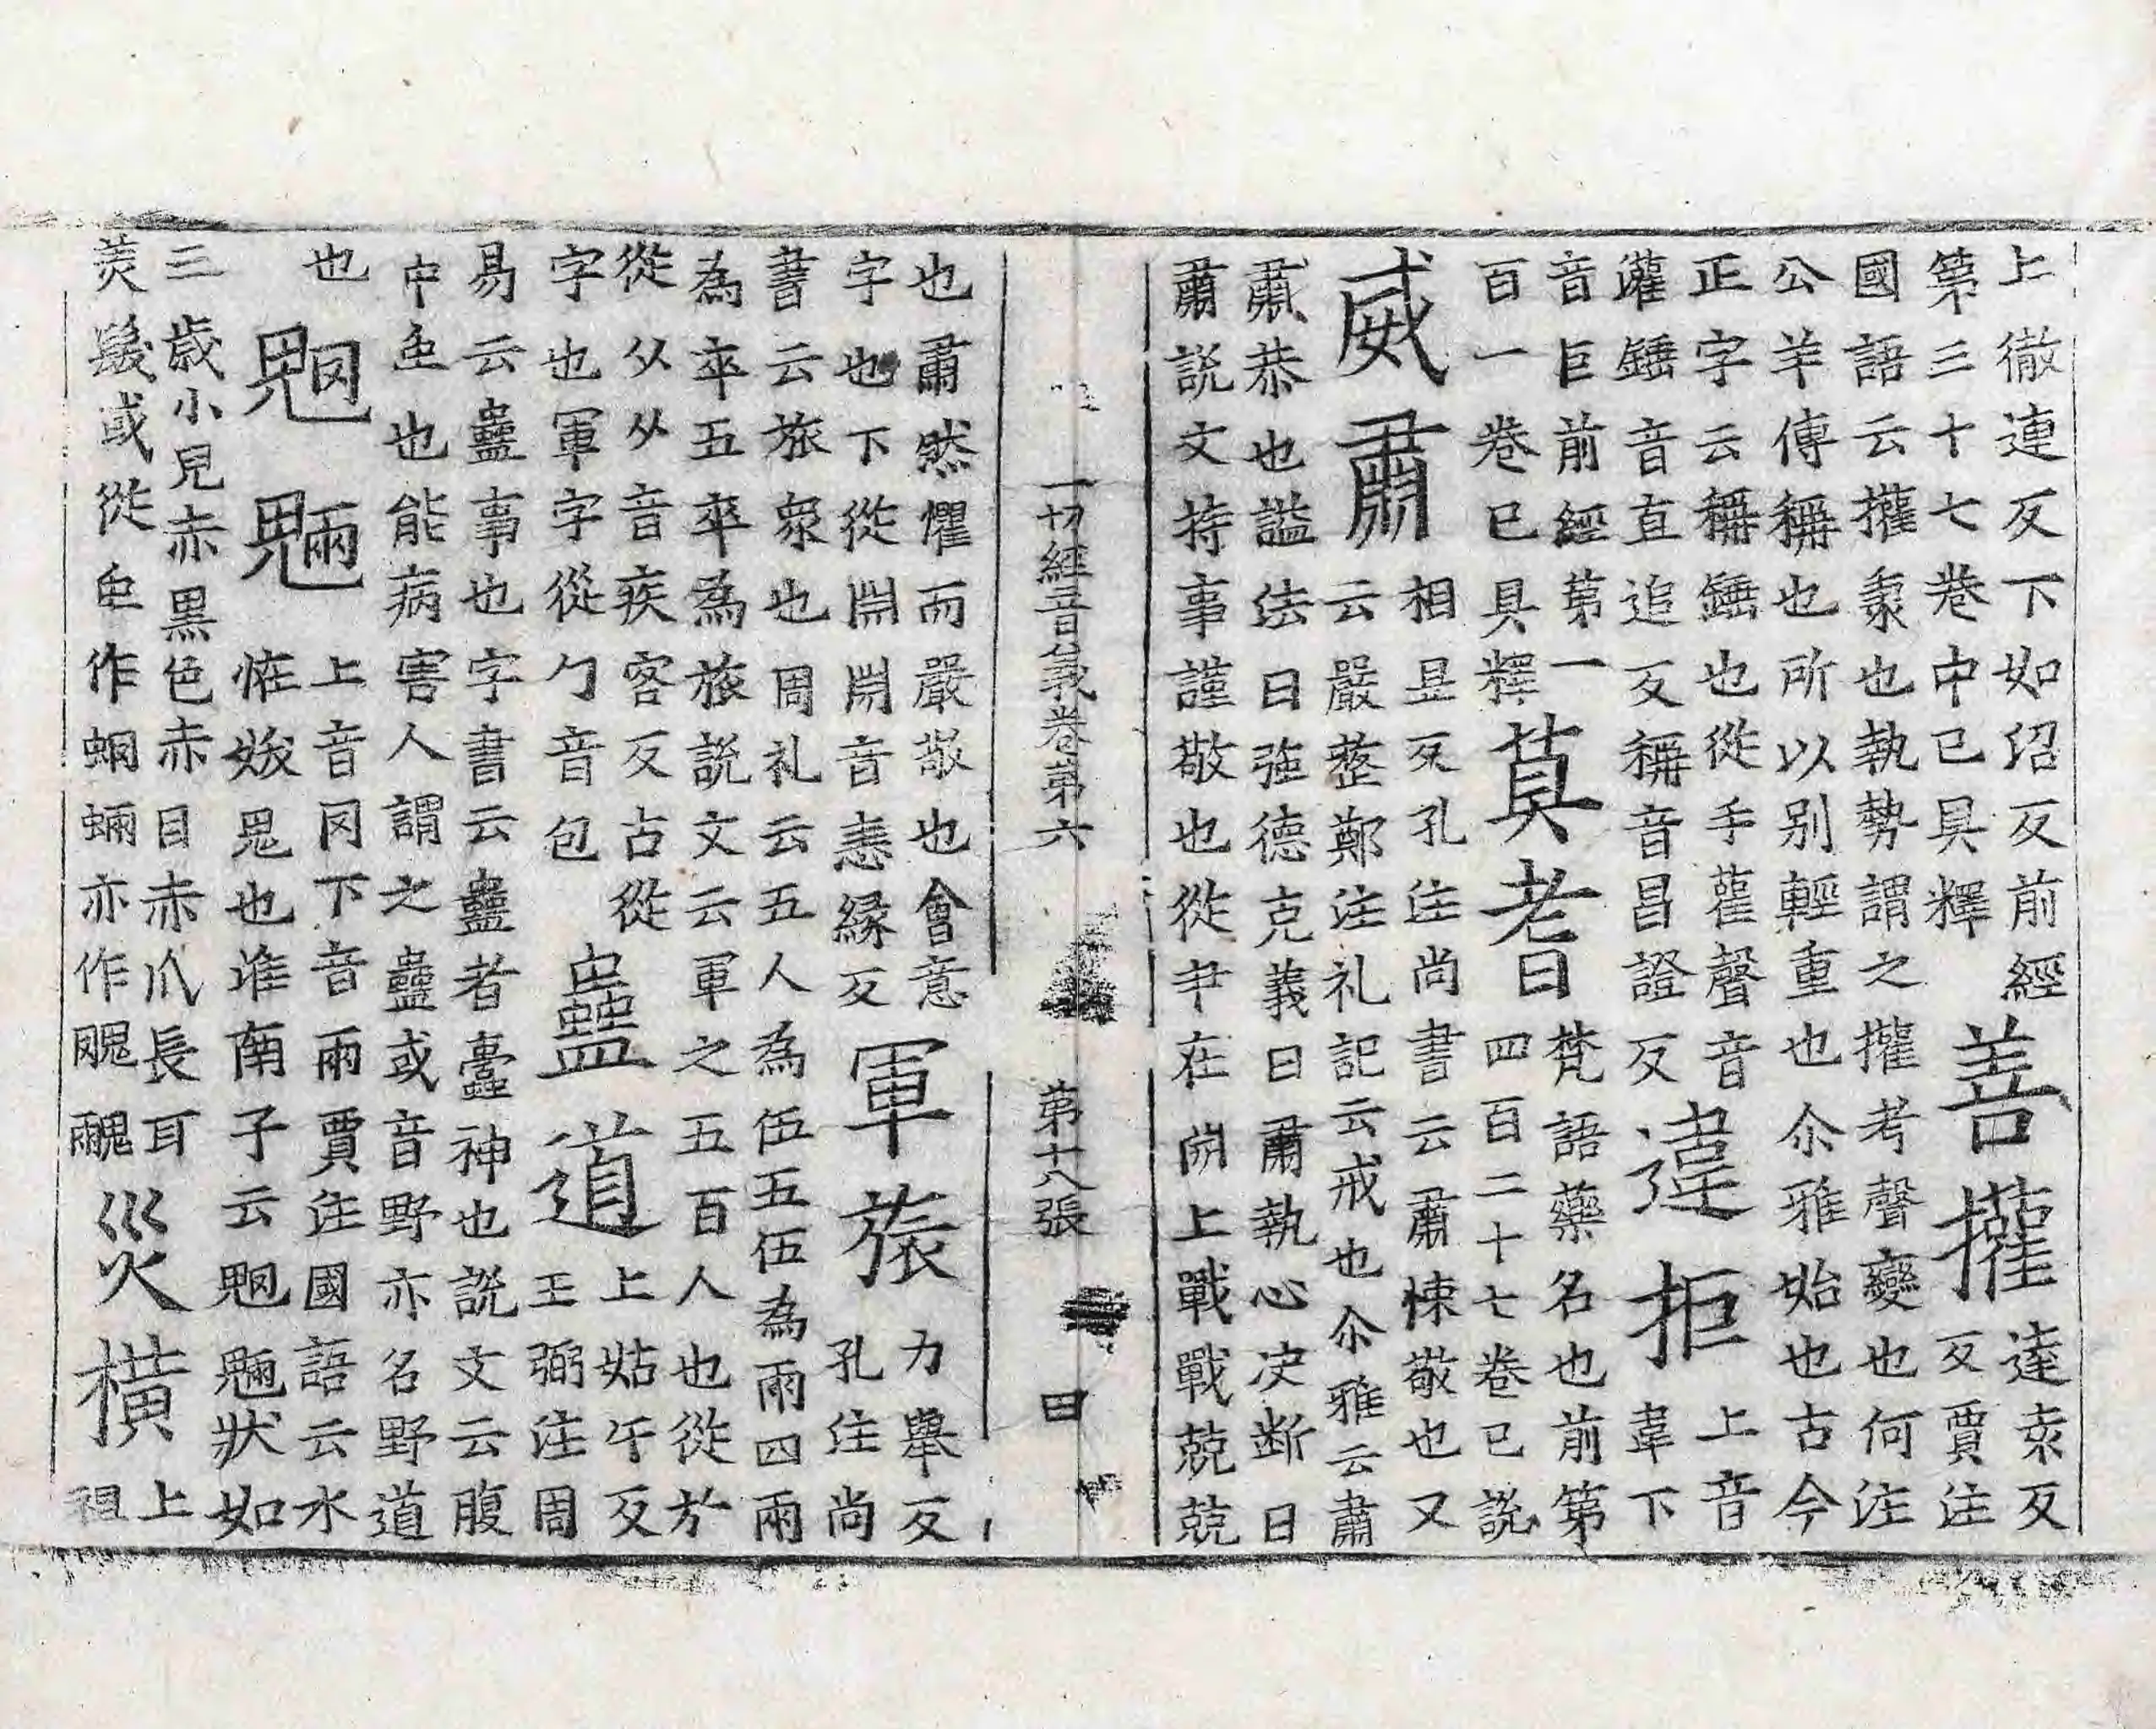 上徹連反下如紹反前經
第三十七卷中已具釋
善攉
達袁反
反賈注
國語云攉秉也執勢謂之攉考聲變也何注
公羊傳稱也所以別輕重也尒雅始也古今
正字云稱錘也從手雚聲音
灌錘音直追反稱音昌證反
違拒
上音
韋下
音巨前經第一
百一卷已具釋
萁耆
梵語藥名也前第
四百二十七卷已説
威肅
相昱反孔注尚書云肅悚敬也又
云嚴整鄭注礼記云戒也尒雅云肅
肅恭也謚法曰強德克義曰肅執心決断曰
肅説文持事謹敬也從𦘒在𣶒上戰戰兢兢
一切經音義卷第六 第十八張 田
也肅然懼而嚴敬也會意
字也下從𣶒𣶒音恚緣反
軍旅
力舉反
孔注尚
書云旅衆也周礼云五人為伍五伍為兩四兩
為卒五卒為旅説文云軍之五百人也從㫃
從从从音疾容反古從
字也軍字從勹音包
蠱道
上姑午反
王弼注周
易云蠱事也字書云蠱者蠹神也説文云腹
中虫也能病害人謂之蠱或音野亦名野道
也
魍魎
上音罔下音兩賈注國語云水
恠妭鬼也淮南子云魍魎狀如
三歳小兒赤黑色赤目赤爪長耳
羙髮或從虫作蝄蜽亦作魍魎
災橫
上
祖